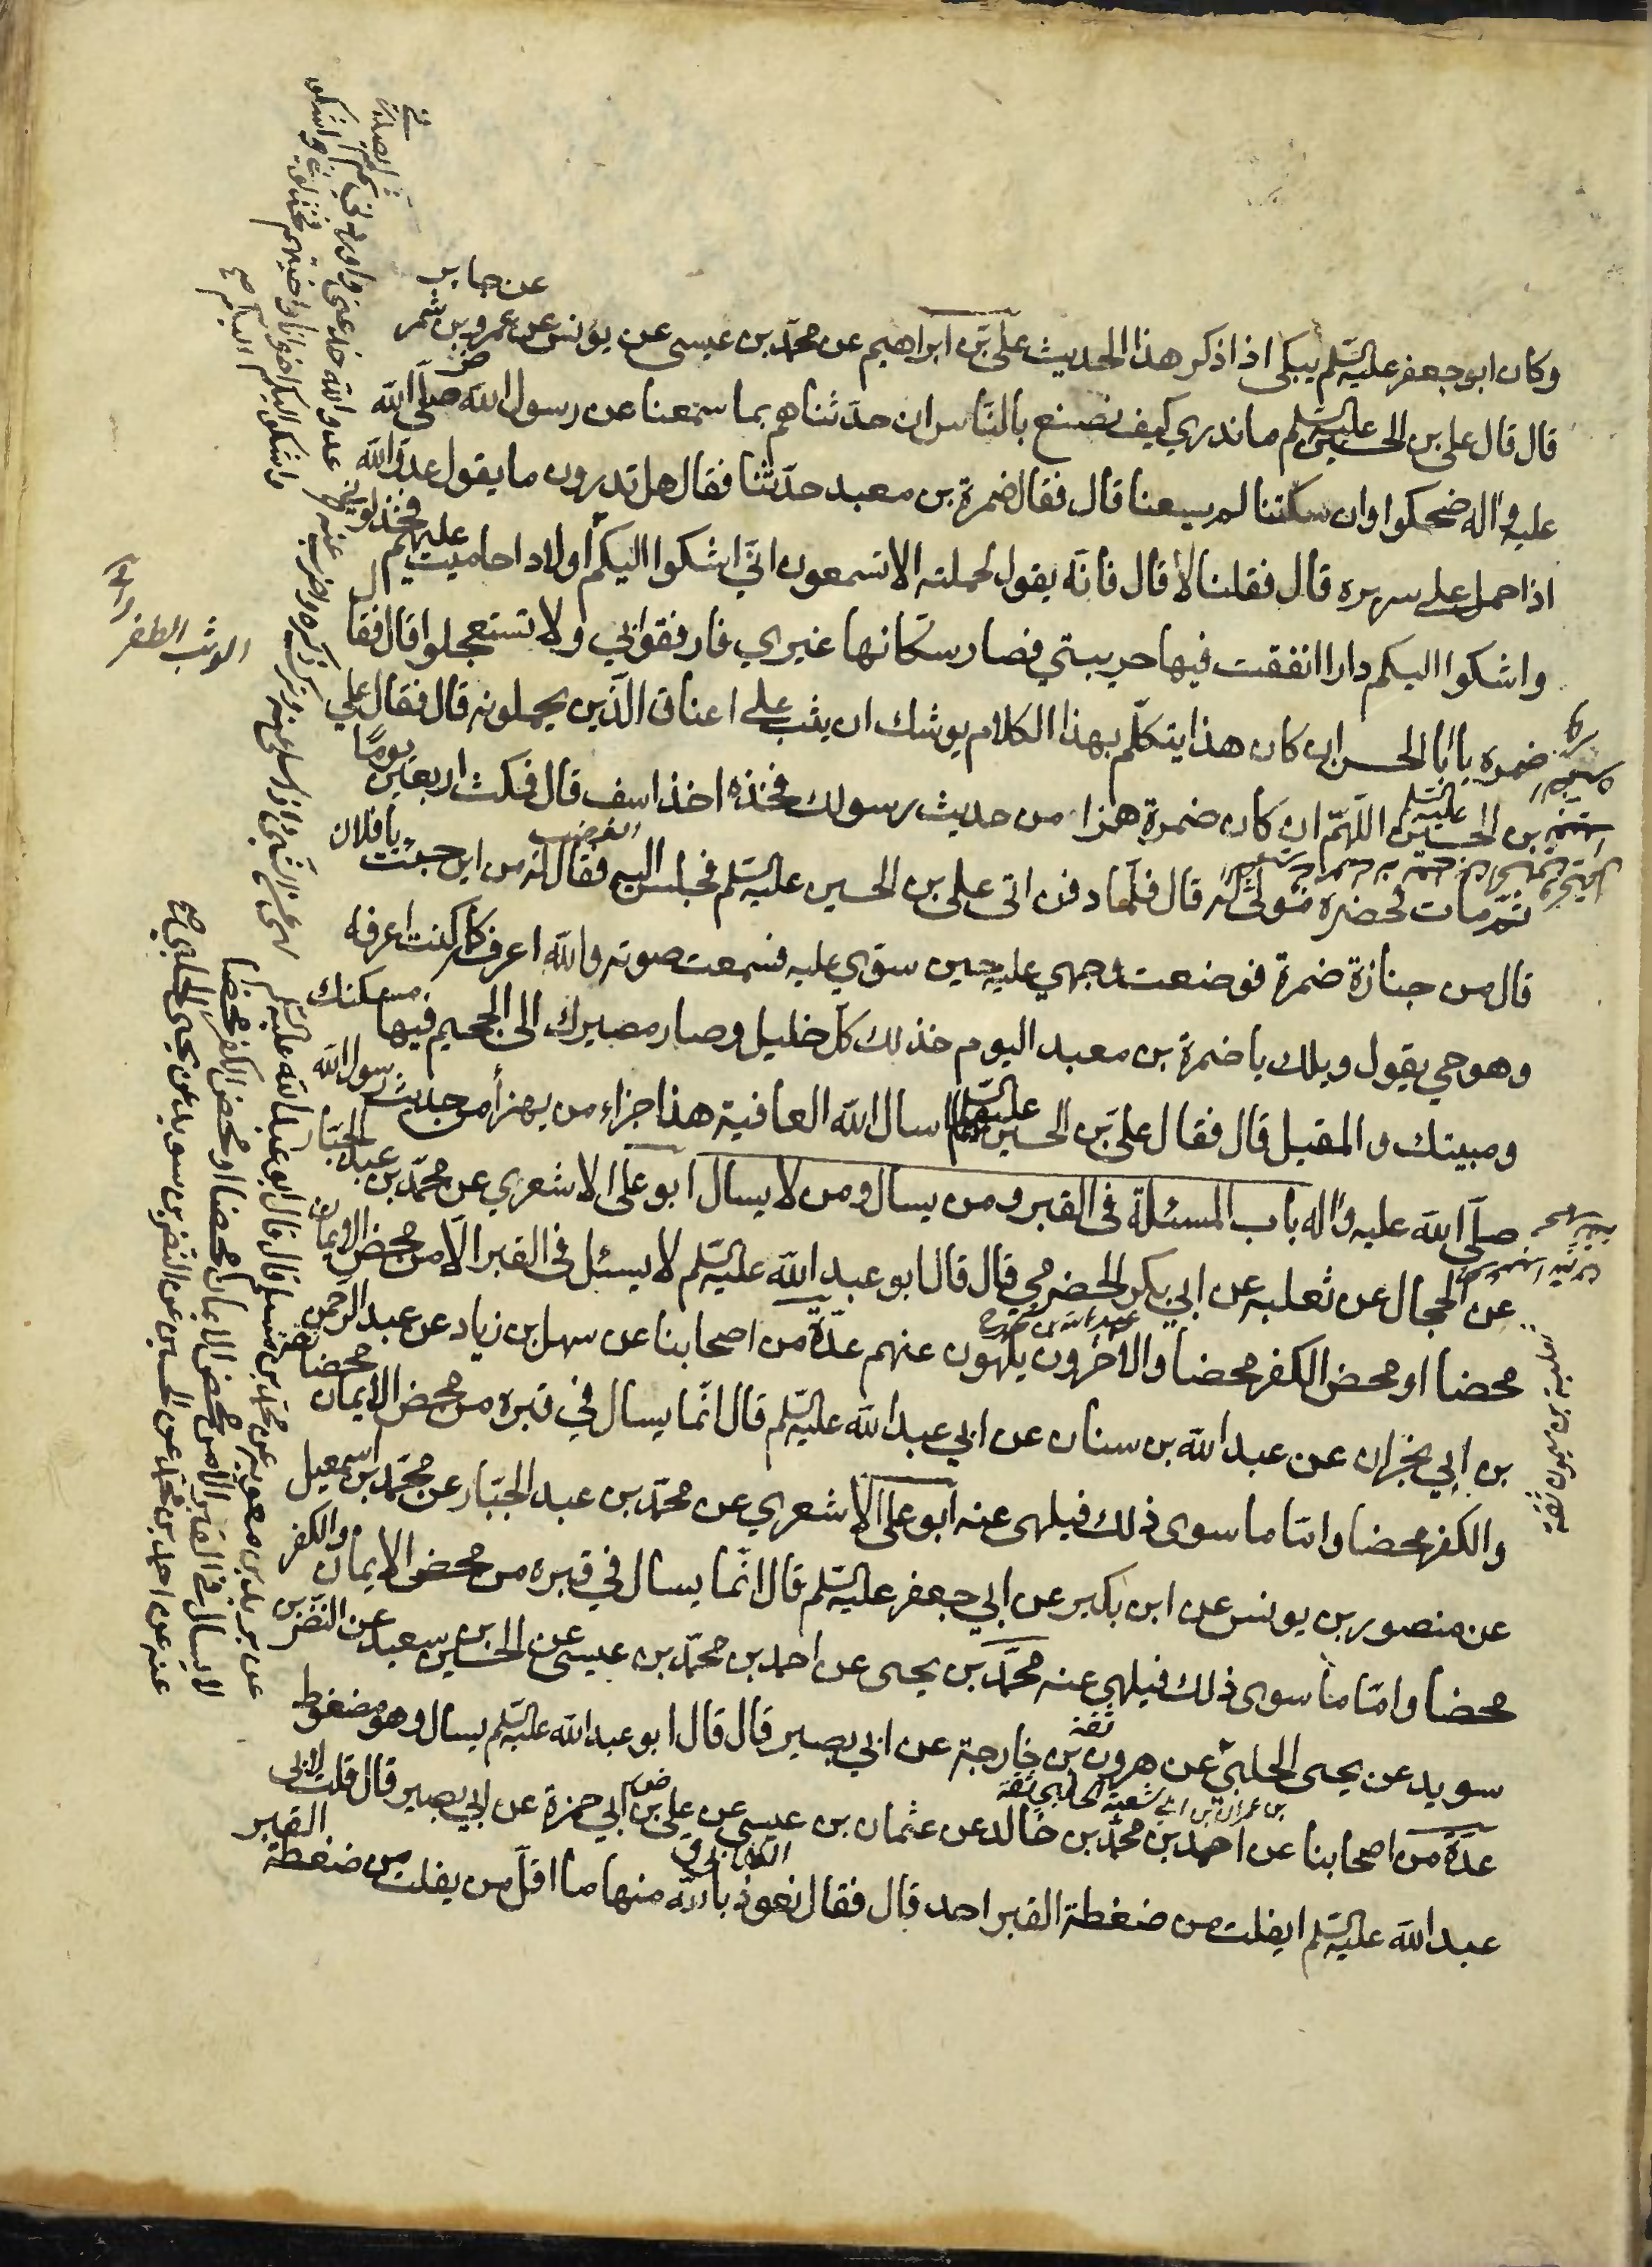 عن جابر
وكان ابو جعفر عليه السّلم يبكي اذا ذكر هذا الحديث علي بن ابراهيم عن محمّد بن عيسى عن يونس عن عمرو بن شمر
قال قال علي بن الحسين عليه السّلم ما ندري كيف نصنع بالنّاس ان حدّثناهم بما سمعنا عن رسول الله صلّى الله
عليه واله ضحكوا وان سكتنا لم يسعنا قال فقال ضمرة بن معبد حدّثنا فقال هل تدرون ما يقول عدوّ الله
اذا حمل على سريره قال فقلنا لا قال فانّه يقول لحملته الا تسمعون انّي اشكوا اليكم اولادا حاميت عليهم فخذلوني
واشكوا اليكم دارا انفقت فيها حريبتي فصار سكّانها غيري فارفقوا بي ولا تستعجلوا قال فقال
ضمره يا ابا الحسن ان كان هذا يتكلّم بهذا الكلام يوشك ان يثب على اعناق الّذين يحملونه قال فقال علي
بن الحسين عليه السّلم اللّهمّ ان كان ضمرة هزا من حديث رسولك فخذه اخذ اسف قال فمكث اربعين يومًا
ثمّ مات فحضره مولى له قال فلمّا دفن اتى علي بن الحسين عليه السّلم فجلس اليه فقال له من اين جئت يا فلان
قال من جنازة ضمرة فوضعت وجهي عليه حين سوّي عليه فسمعت صوته والله اعرفه كما كنت اعرفه
وهو حي يقول ويلك يا ضمرة بن معبد اليوم خذلك كلّ خليل وصار مصيرك الى الجحيم فيها مسكنك
ومبيتك والمقيل قال فقال علي بن الحسين عليهما السّلم اسال الله العافية هذا جزاء من يهزأ من حديث رسول الله
صلّى الله عليه واله باب المسئلة في القبر ومن يسال ومن لا يسال ابو علي الاشعري عن محمّد بن عبد الجبّار
عن الحجال عن ثعلبه عن ابي بكر الحضرمي قال قال ابو عبد الله عليه السّلم لا يسئل في القبر الّا من محض الايمان
محضا او محض الكفر محضا والاخرون يلهون عنهم عدّة من اصحابنا عن سهل بن زياد عن عبد الرّحمن
بن ابي نجران عن عبد الله بن سنان عن ابي عبد الله عليه السّلم قال انّما يسال في قبره من محض الايمان محضا
والكفر محضا وامّا ما سوى ذلك فيلهى عنه ابو علي الاشعري عن محمّد بن عبد الجبّار عن محمّد بن اسمعيل
عن منصور بن يونس عن ابن بكير عن ابي جعفر عليه السّلم قال انّما يسال في قبره من محض الايمان والكفر
محضا وامّا ما سوى ذلك فيلهى عنه محمّد بن يحيى عن احمد بن محمّد بن عيسى عن الحسين بن سعيد عن النّضر بن
سويد عن يحيى الحلبي عن هرون بن خارجة عن ابي بصير قال قال ابو عبد الله عليه السّلم يسال وهو مضغوط
عدّة من اصحابنا عن احمد بن محمّد بن خالد عن عثمان بن عيسى عن علي بن ابي حمزة عن ابي بصير قال قلت لابي
عبد الله عليه السّلم ايفلت من ضغطة القبر احد قال فقال نعوذ بالله منها ما اقلّ من يفلت من ضغطة القبر
الوثب الطفر
عن بريد بن معوية عن محمد بن مسلم قال قال ابو عبد الله عليه السّلم
لا يسال في القبر الا من محض الايمان محضا او محض الكفر محضا
عنه عن احمد بن محمد عن الحسين عن النضر بن سويد عن يحيى الحلبي صح
ثعلبة بن ميمون ثقة